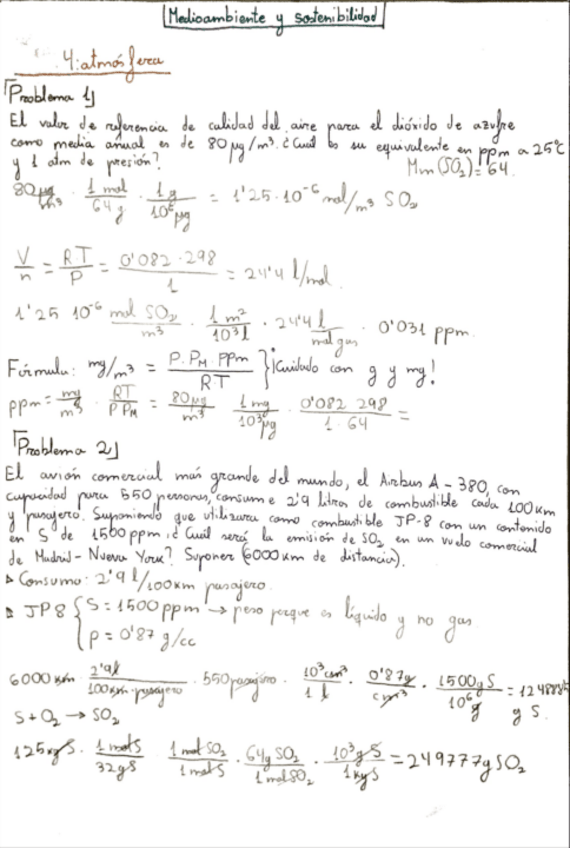 Medioambiente y sostenibilidad
4: atmósfera
Problema 1
El valor de referencia de calidad del aire para el dióxido de azufre
como media anual es de 80 μg/m³. ¿Cuál es su equivalente en ppm a 25°C
y 1 atm de presión?
Mm (SO₂) = 64.
80 μg/m³ · 1 mol/64 g · 1 g/10⁶ μg = 1'25·10⁻⁶ mol/m³ SO₂
V/n = R·T/P = 0'082·298/1 = 24'4 l/mol.
1'25 10⁻⁶ mol SO₂/m³ · 1 m³/10³ l · 24'4 l/mol gas · 0'031 ppm.
Fórmula: mg/m³ = P·P_M·ppm/R·T } ¡Cuidado con g y mg!
ppm = mg/m³ · RT/P P_M = 80 μg/m³ 1 mg/10³ μg · 0'082 298/1·64 =
Problema 2
El avión comercial más grande del mundo, el Airbus A-380, con
capacidad para 550 personas, consume 2'9 litros de combustible cada 100 km
y pasajero. Suponiendo que utilizara como combustible JP-8 con un contenido
en S de 1500 ppm, ¿Cuál será la emisión de SO₂ en un vuelo comercial
de Madrid - Nueva York? Suponer (6000 km de distancia).
Consumo: 2'9 l/100 km pasajero.
JP8 { S = 1500 ppm → peso porque es líquido y no gas
ρ = 0'87 g/cc
6000 km · 2'9 l/100 km·pasajero · 550 pasajero · 10³ cm³/1 l · 0'87 g/cm³ · 1500 g S/10⁶ g =
g S.
S + O₂ → SO₂
125 kg S · 1 mol S/32 g S · 1 mol SO₂/1 mol S · 64 g SO₂/1 mol SO₂ · 10³ g S/1 kg S = 249777 g SO₂